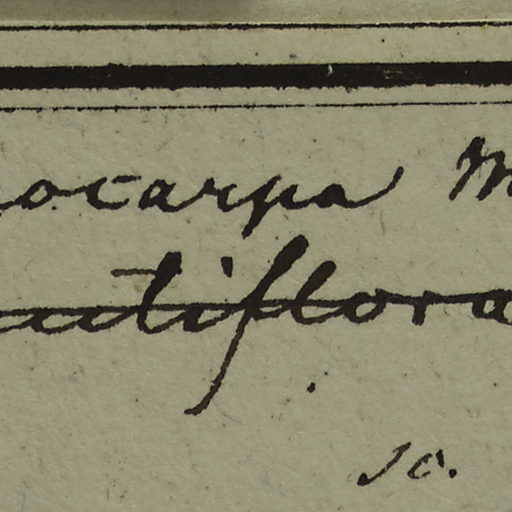 ocarpa M
utiflora
sc.